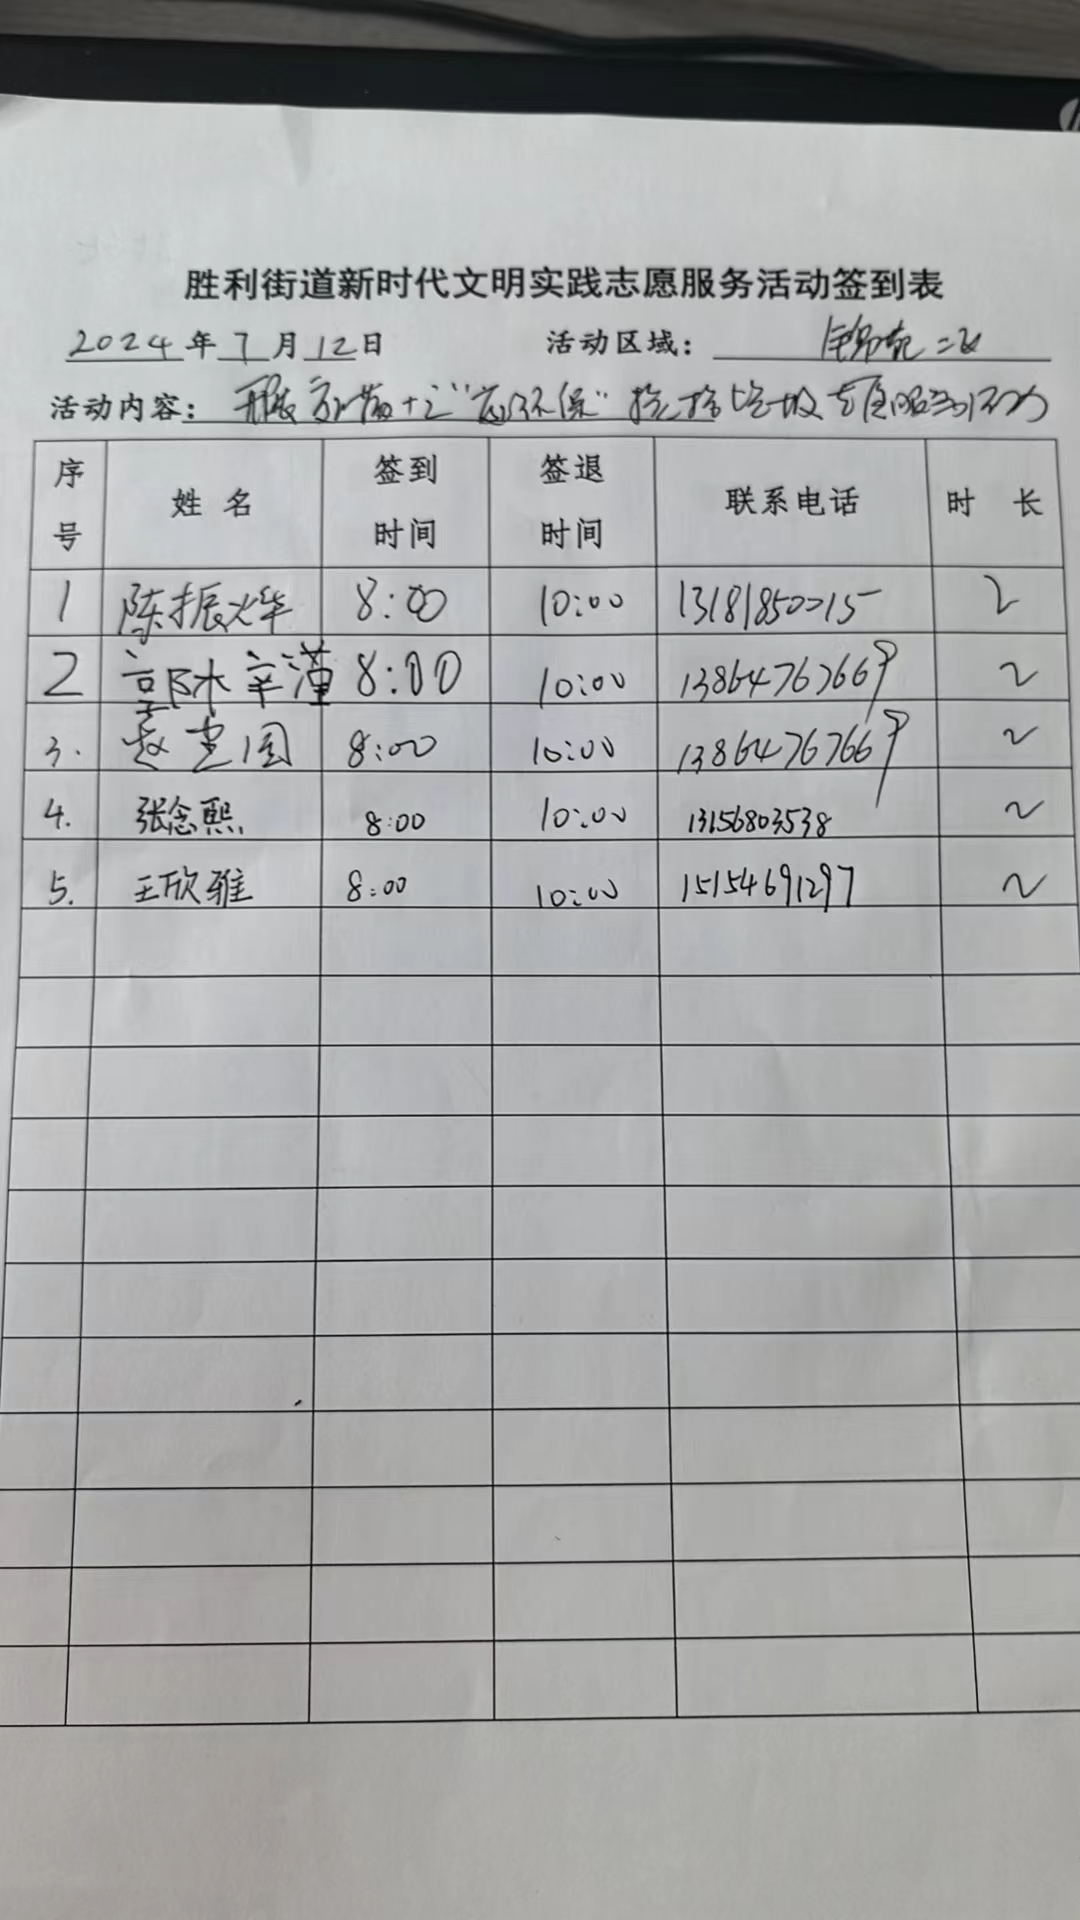 胜利街道新时代文明实践志愿服务活动签到表
2024年7月12日 活动区域: 锦苑二区
活动内容: 开展 "环保" 捡拾垃圾志愿服务活动
序号 姓名 签到时间 签退时间 联系电话 时 长
1 陈振烨 8:00 10:00 13181850215 2
2 郭沐辛瑾 8:00 10:00 13864767669 2
3. 赵 8:00 10:00 13864767669 2
4. 张念熙 8:00 10:00 13156803538 2
5. 王欣雅 8:00 10:00 15154691297 2